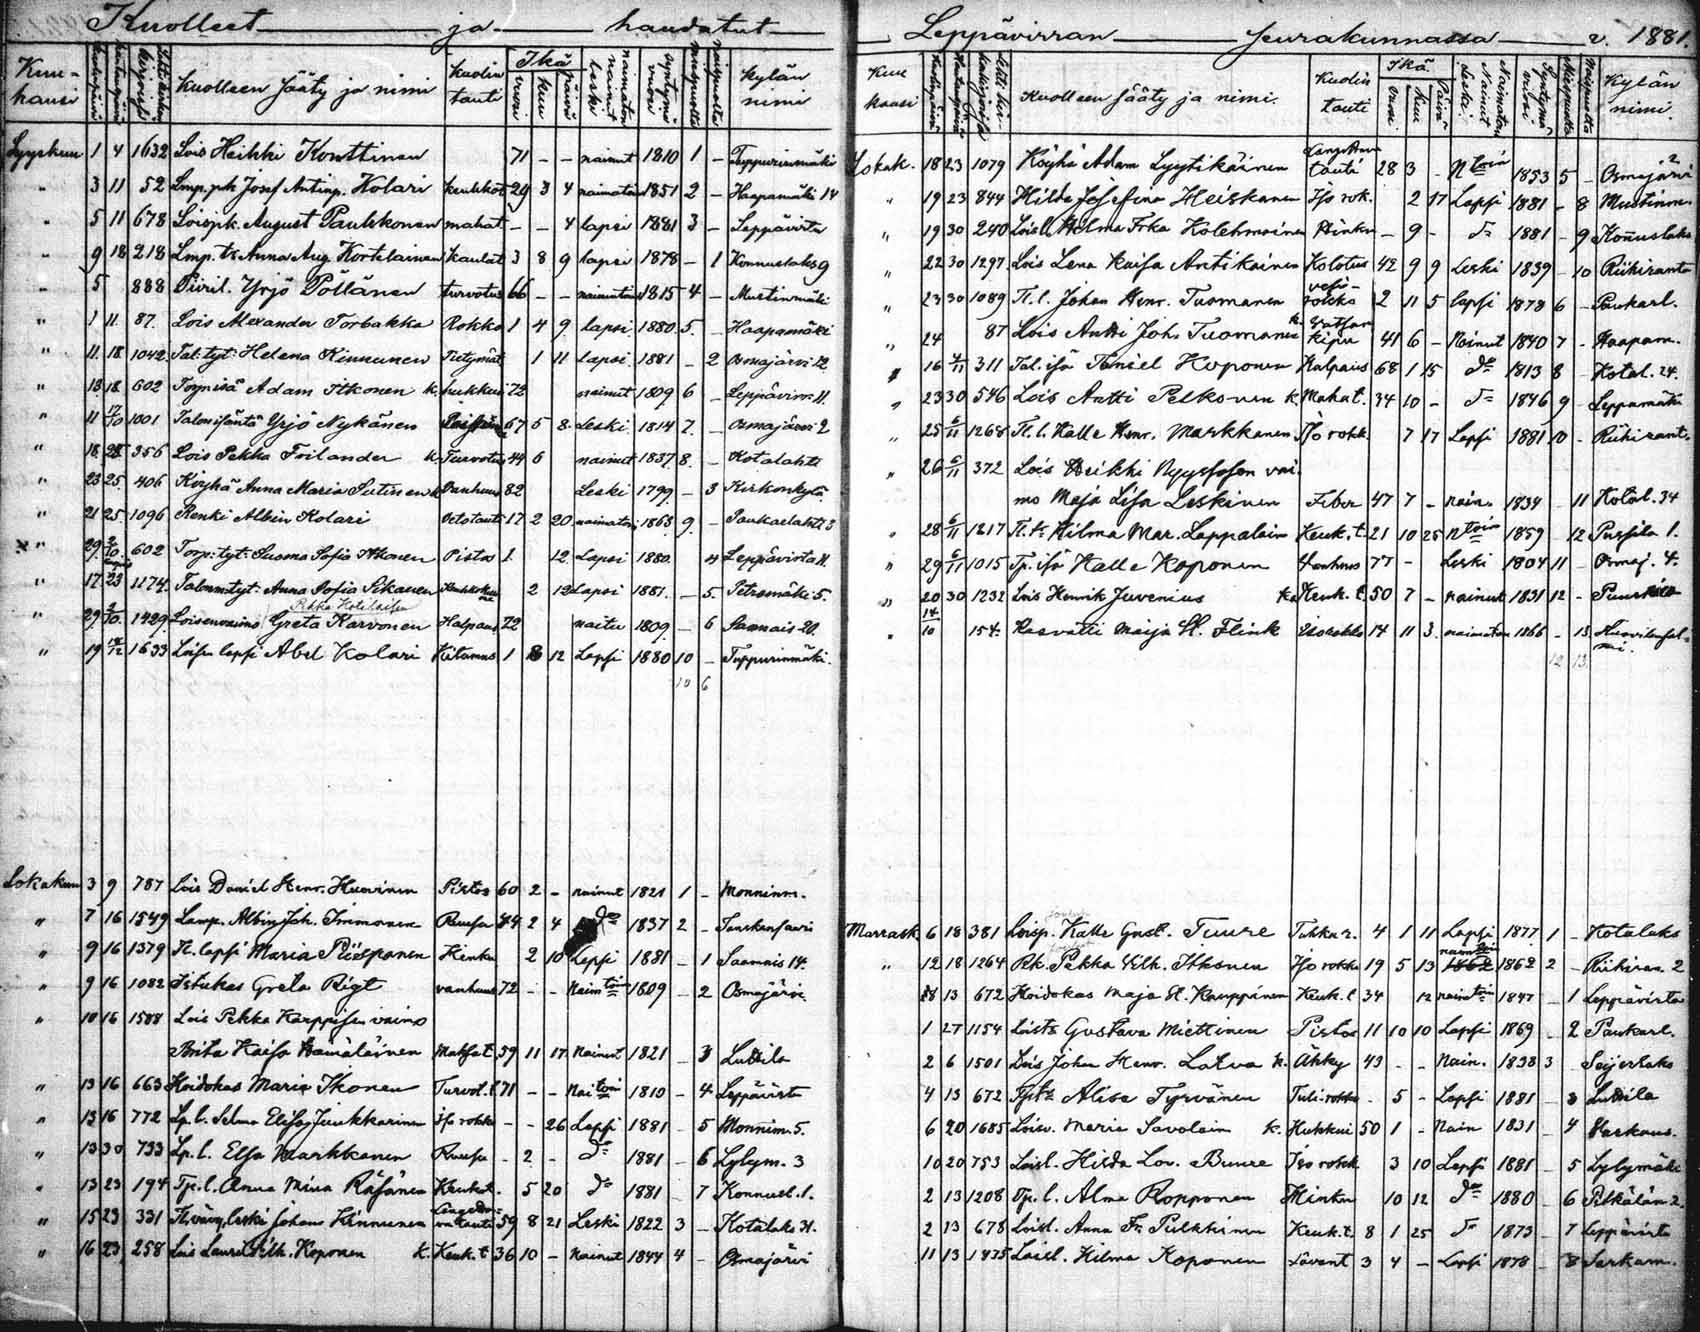 Kuolleet ja haudatut
Kuukausi Kuolleen sääty ja nimi kuolintauti Ikä vuosi kuu päivä naimaton nainut leski syntymävuosi miespuolta vaimopuolta kylän nimi
Syyskuu 1 4 1632 Lois Heikki Konttinen 71 - - nainut 1810 1 - Tuppurinmäki
" 3 11 52 Lmp. ph Josef Antinp. Kolari keuhkot 29 3 4 naimaton 1851 2 - Haapamäki 14
" 5 11 678 Loisp.k. August Paukkonen mahat. - - 4 lapsi 1881 3 - Leppävirta
" 9 18 218 Lmp. ts Anna Aug. Kortelainen kaulat 3 8 9 lapsi 1878 - 1 Konnuslaks 9
" 5 888 Yrjö Pöllänen turvotus 66 - - naimaton 1815 4 - Mustinmäki
" 1 11 87. Lois Alexander Torbakka Rokko 1 4 9 lapsi 1880 5 - Haapamäki
" 11. 18 1042 Tal. tyt: Helena Kinnunen Tietymät 1 11 lapsi 1881 - 2 Osmajärvi 12.
" 13 18 602 Adam Itkonen k. 72 nainut 1809 6 - Leppävir. 11.
" 11 17/10 1001 Talonisäntä Yrjö Nykänen 67 5 8 Leski 1814 7. - Osmajärvi 2
" 18 25 356 Lois Pekka Frilander k. Turvotus 44 6 nainut 1837 8. - Kotalahti
" 23 25. 406 Köyhä Anna Maria Sutinen k. Vanhuus 82 Leski 1799 - 3 Kirkonkylä
" 21 25 1096 Renki Albin Kolari 17 2 20 naimaton 1863 9. - Paukarlahti 3
x " 29 2/10. 602 Torp: tyt: Susma Sofia Itkonen Pistos 1. 12 Lapsi 1880. 4 Leppävirta 11.
" 17. 23 1174. Talonntyt: Anna Sofia Sikanen 2 12 Lapsi 1881. - 5. Petromäki 5.
" 29 2/10. 1429. Loisenvaimo Greta Karvonen Halpaus 72 naitu 1809. - 6 Saamais 20.
" 19 14/12 1633 Loisen lapsi Abel Kolari Kitumus 1 8 12 Lapsi 1880 10 - Tuppurinmäki.
10 6
Lokakuu 3 9 787 Lois Daniel Henr. Huovinen Pistos 60 2 - nainut 1821 1 - Monninm.
" 7 16 1549 Lamp. Albin Joh. Immonen Ruusu 44 2 4 do 1837 2 -
" 9 16 1379 It. lapsi Maria Piisponen Hinku 2 10 Lapsi 1881 - 1 Saamais 14.
" 9 16 1082 Istukas Greta Rigt vanhuus 72 - - Naimtoin 1809 - 2 Osmajärvi
" 10 16 1588 Lois Pekka Karppisen vaimo
Brita Kaisa Hämäläinen Mahat. 59 11 17 Nainut 1821 - 3 Luttila
" 13 16 663 Hoidokas Maria Ikonen Turvot. t. 71 - - Naitoin 1810 - 4 Leppävirta
" 13 16 772 Lp. l. Selma Elisa Juukkarinen Iso rokko - - 26 Lapsi 1881 - 5 Monnim. 5.
" 13 30 733 Lp. l. Elsa Markkanen Ruusu - 2 - do 1881 - 6 Lylym. 3
" 13 23 194 Tp. l. Anna Miina Räsänen Keuhot. 5 20 do 1881 - 7 Konnusl. 1.
" 15 23 331 Leski Johan Kinnunen 59 8 21 Leski 1822 3 - Kotalaks 31.
" 16 23 258 Lois Lauri Vilh. Koponen k. Keuk. t. 36 10 - Nainut 1844 4 - Osmajärvi
Leppävirran seurakunnassa v. 1881.
Kuukausi Kuolleen sääty ja nimi. Kuolintauti Ikä vuosi kuu päivä Naimaton Nainut Leski. Syntymävuosi Miespuolta Vaimopuolta Kylän nimi.
Lokak. 18 23 1079 Köyhä Adam Lyytikäinen tauti 28 3 - Ntoin 1853 5 - Osmajärvi 2
" 19 23 844 Hilda Josefina Heiskanen Iso rok. 2 17 Lapsi 1881 - 8 Mustinm.
" 19 30 240 Loisl. Helma Frka Kolehmainen Hinku - 9 - do 1881 - 9 Konnuslaks
" 22 30 1297. Lois Lena Kaisa Antikainen Kolotus 42 9 9 Leski 1839 - 10 Riikiranta
" 23 30 1089 It. l. Johan Henr. Tuomanen vesirokko 2 11 5 lapsi 1878 6 - Paukarl.
" 24 87 Lois Antti Joh. Tuomanen k. Vatsan kipu 41 6 - Nainut 1840 7 - Haapam.
" 16 4/11 311 Tal. isä Taniel Koponen Halpaus 68 1 15 do 1813 8 - Kotal. 24.
" 23 30 546 Lois Antti Pelkonen k. Mahat. 34 10 - do 1846 9 - Leppämäki
" 25 6/11 1268 It. l. Kalle Henr. Markkanen Iso rokk. 7 17 Lapsi 1881 10 - Riikirant.
" 26 6/11 372 Lois Heikki Nyyssösen vaimo
Maja Lisa Leskinen Feber 47 7 - nain. 1834 - 11 Kotal. 34
" 28 6/11 1617 It. tr. Hilma Mar. Lappalain Keuk. t. 21 10 25 Ntoin 1859 - 12 Pussila 1.
" 29 6/11 1015 Tp. isä Kalle Koponen Vanhuus 77 - Leski 1804 11 - Osmaj. 4.
" 20 30 1232 Lois Henrik Juvenius k. Keuk. t. 50 7 - nainut 1831 12 -
" 14/10 154. Kasvatti Maija St. Flink Isorokko 14 11 3. naimaton 1866 - 13.
12 13.
Marrask. 6 18 381 Loisp. Kalle Gust. Tuure Tuhkar. 4 1 11 Lapsi 1877. 1 - Kotalaks
" 12 18 1264 Rk. Pekka Vilh. Itkonen Iso rokko 19 5 13 naimtoin 1862 2 - Riikiran. 2
18 13 672 Hoidokas Maja St. Knuppinen Keuk. t 34 12 naimtoin 1847 - 1 Leppävirta
1 27 1154 Loistr. Gustava Miettinen Pistos 11 10 10 Lapsi 1869 - 2 Paukarl.
2 6 1501 Lois Johan Henr. Latva k. Ähky 43 - - Nain. 1838 3 Seijerlaks
4 13 672 Alisa Tyrvänen Tulirokko - 5 - Lapsi 1881 - 3 Luttila
6 20 1685 Loisv. Maria Savolain k. Hukkui 50 1 - Nain 1831 - 4 Varkaus.
10 20 753 Loisl. Hilda Lov. Buure Iso rokk 3 10 Lapsi 1881 - 5 Lylymäki
2 13 1208 Tp. l. Alma Ropponen Hinku 10 12 do 1880 - 6 Petkälän 2.
2 13 678 Loisl. Anna Fr. Pulkkinen Keuk. t. 8 1 25 do 1873 - 7 Leppävirta
11 13 1475 Loisl. Hilma Koponen Lavant 3 4 - Lapsi 1878 - 8 Sarkam.